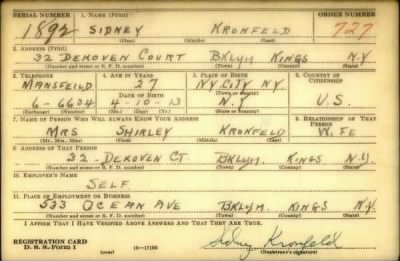 SERIAL NUMBER 1. NAME (Print) ORDER NUMBER
1892 SIDNEY KRONFELD 727
(First) (Middle) (Last)
2. ADDRESS (Print)
32 DEKOVEN COURT BKLYN KINGS N.Y
(Number and street or R. F. D. number) (Town) (County) (State)
3. TELEPHONE 4. AGE IN YEARS 5. PLACE OF BIRTH 6. COUNTRY OF CITIZENSHIP
MANSFEILD 27 NY. CITY NY.
DATE OF BIRTH (Town or county)
6-6634 4-10-13 N.Y U.S.
(Exchange) (Number) (Mo.) (Day) (Yr.) (State or country)
7. NAME OF PERSON WHO WILL ALWAYS KNOW YOUR ADDRESS 8. RELATIONSHIP OF THAT PERSON
MRS SHIRLEY KRONFELD WIFE
(Mr., Mrs., Miss) (First) (Middle) (Last)
9. ADDRESS OF THAT PERSON
32 DEKOVEN CT. BKLYN. KINGS N.Y.
(Number and street or R. F. D. number) (Town) (County) (State)
10. EMPLOYER'S NAME
SELF
11. PLACE OF EMPLOYMENT OR BUSINESS
533 OCEAN AVE BKLYN. KINGS N.Y
(Number and street or R. F. D. number) (Town) (County) (State)
I AFFIRM THAT I HAVE VERIFIED ABOVE ANSWERS AND THAT THEY ARE TRUE.
REGISTRATION CARD Sidney Kronfeld
D. S. S. Form 1 (Registrant's signature)